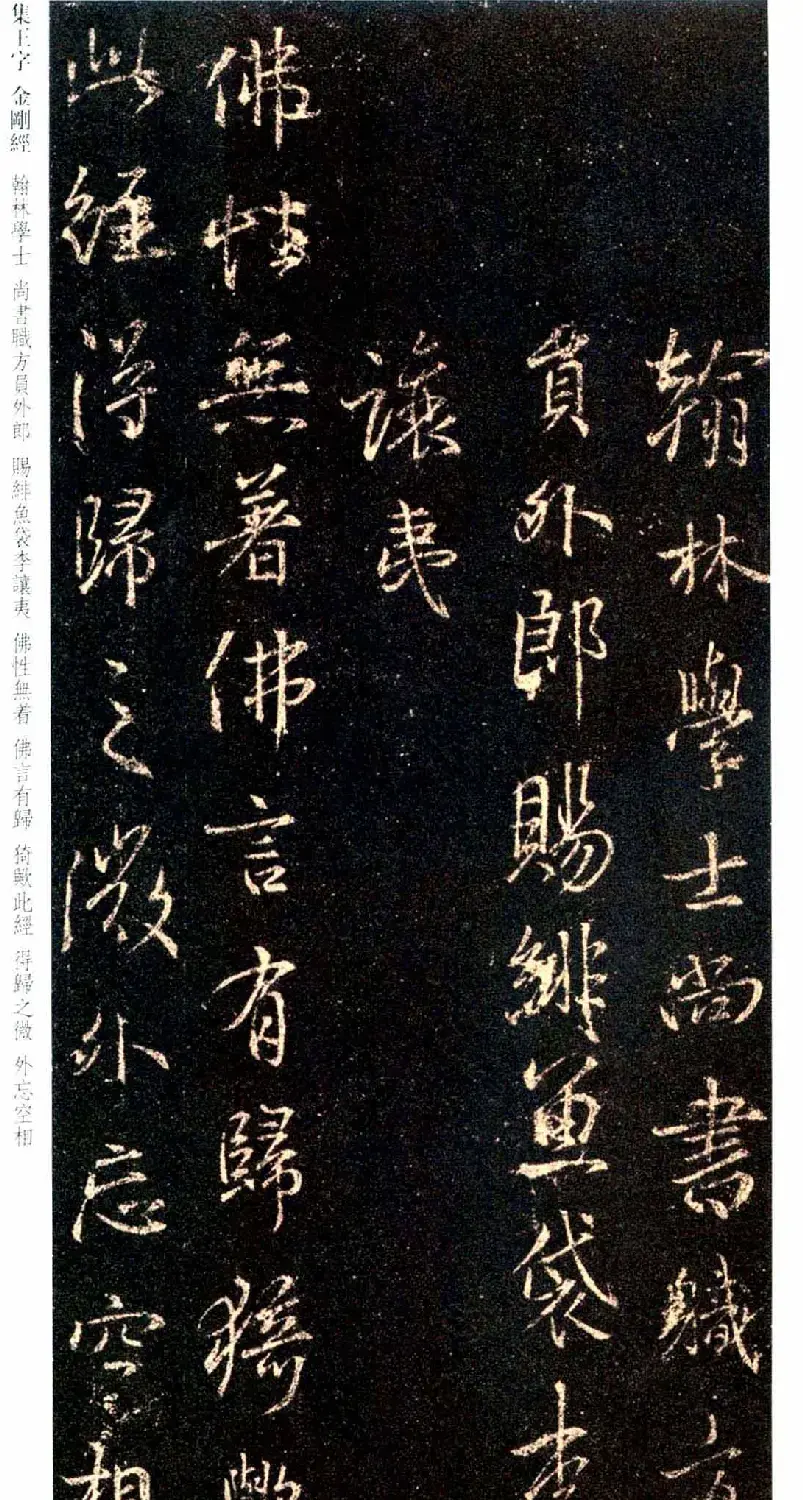 翰林學士尚書職方
員外郎賜緋魚袋李
讓夷
佛性無著佛言有歸猗歟
此經得歸之微外忘空相
集王字 金剛經 翰林學士 尚書職方員外郎 賜緋魚袋李讓夷 佛性無着 佛言有歸 猗歟此經 得歸之微 外忘空相